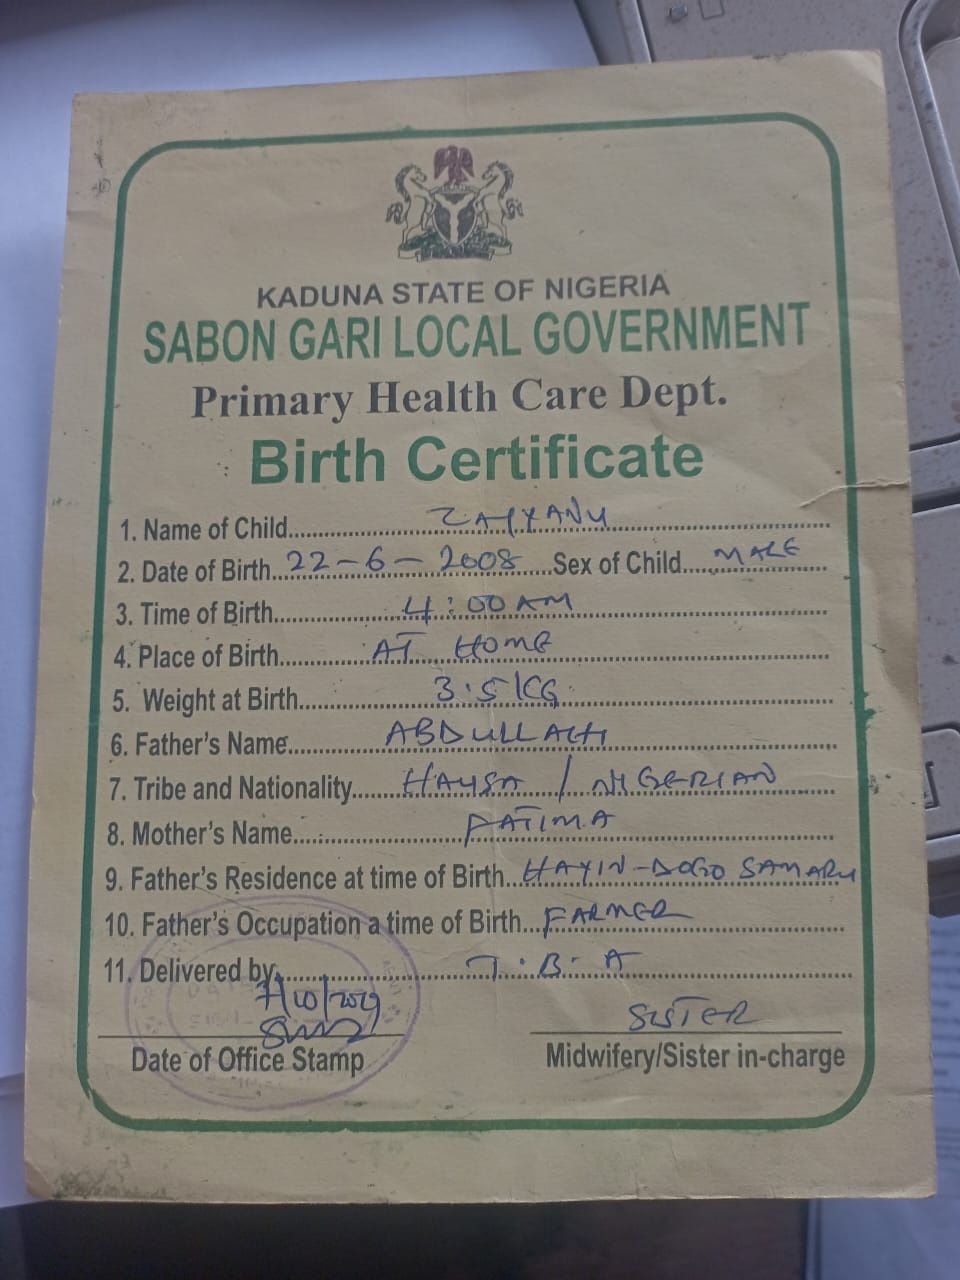 KADUNA STATE OF NIGERIA
SABON GARI LOCAL GOVERNMENT
Primary Health Care Dept.
Birth Certificate
1. Name of Child.......... ZAIYANU
2. Date of Birth... 22-6-2008 ......Sex of Child..... MALE
3. Time of Birth.......... 4:00 AM
4. Place of Birth.......... AT HOME
5. Weight at Birth.......... 3.5 KG
6. Father's Name.......... ABDULLAHI
7. Tribe and Nationality....... HAUSA / NIGERIAN
8. Mother's Name.......... FATIMA
9. Father's Residence at time of Birth... HAYIN-DOGO SAMARU
10. Father's Occupation a time of Birth... FARMER
11. Delivered by.......... T.B.A
SISTER
Date of Office Stamp
Midwifery/Sister in-charge